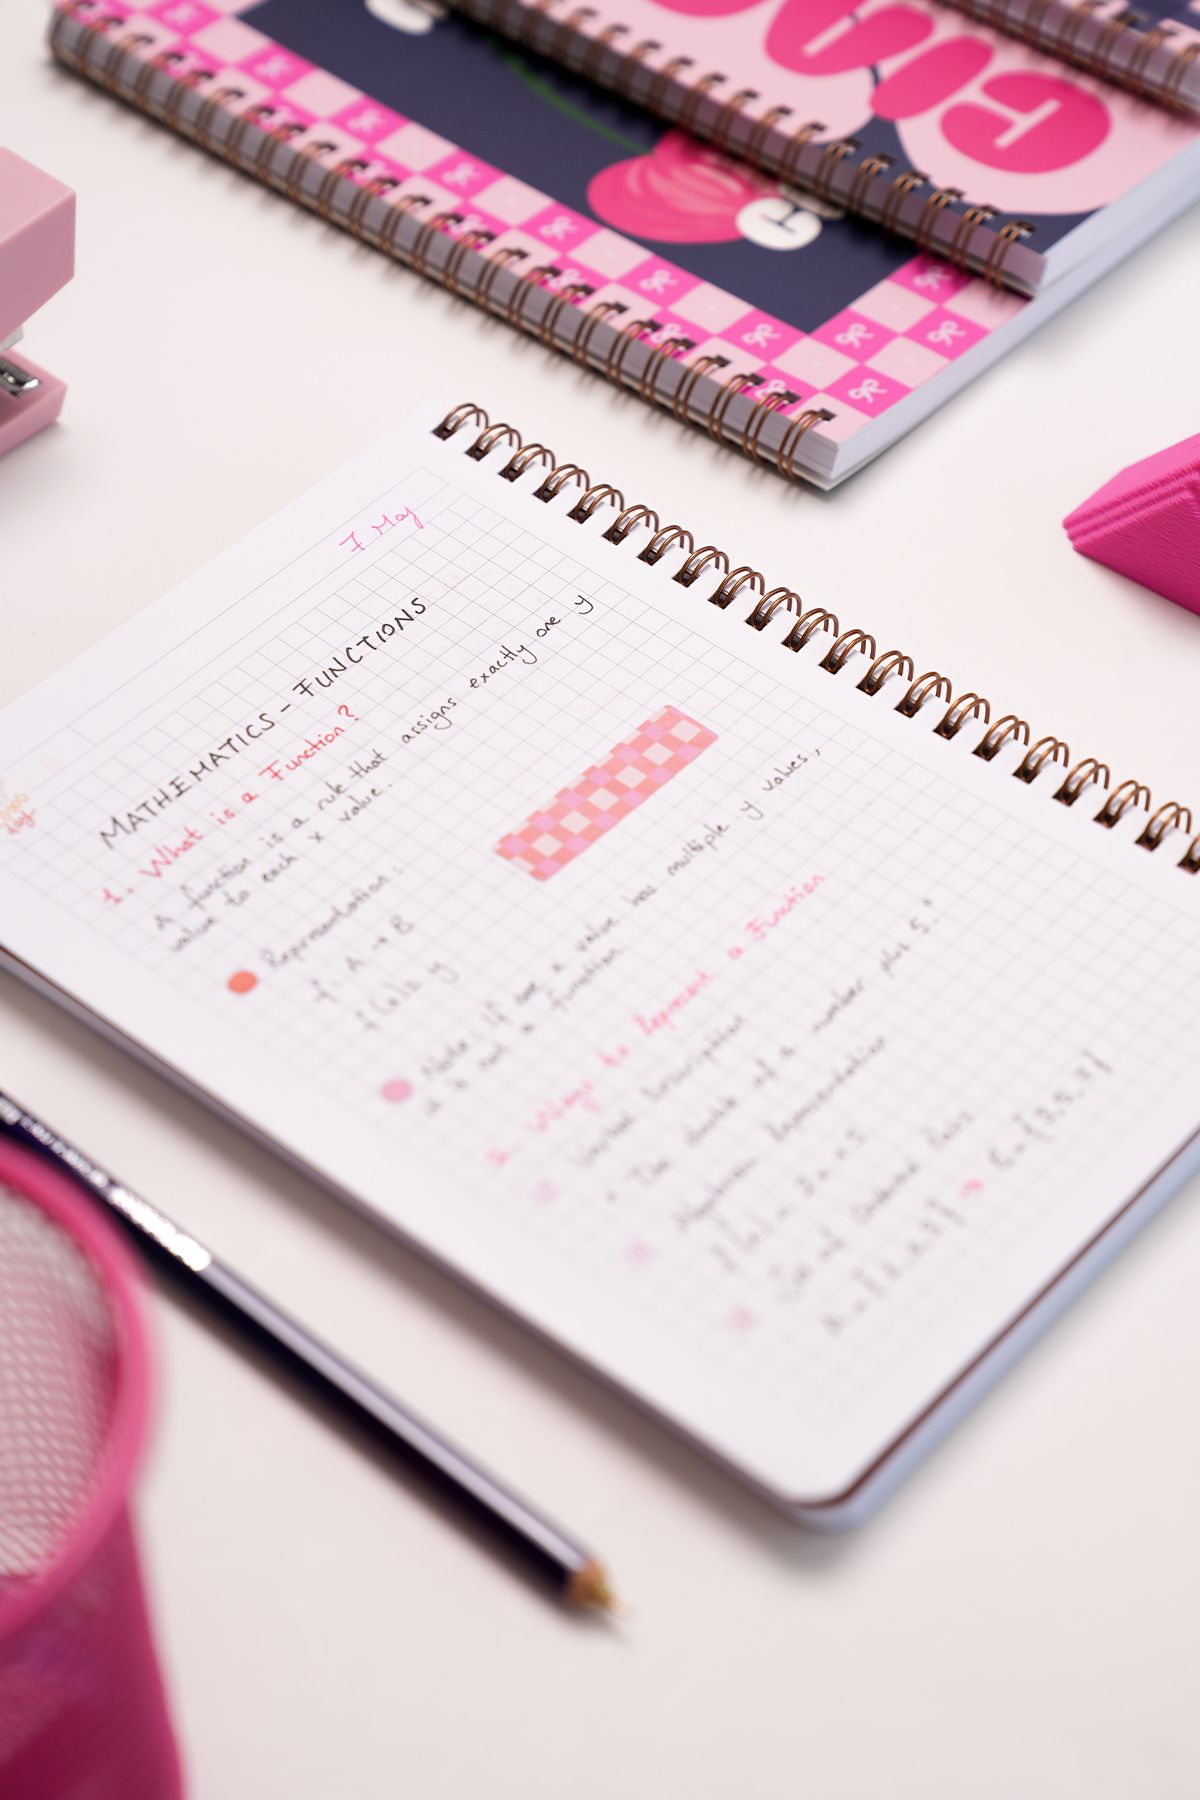 7 May
MATHEMATICS - FUNCTIONS
1. What is a Function?
A function is a rule that assigns exactly one y
value to each x value.
Representation:
f: A → B
f(x) = y
Note: If one x value has multiple y values,
it is not a function
2. Ways to Represent a Function
Verbal Description
"The double of a number plus 5."
Representation
f(x) = 2x + 5
Set of Ordered Pairs